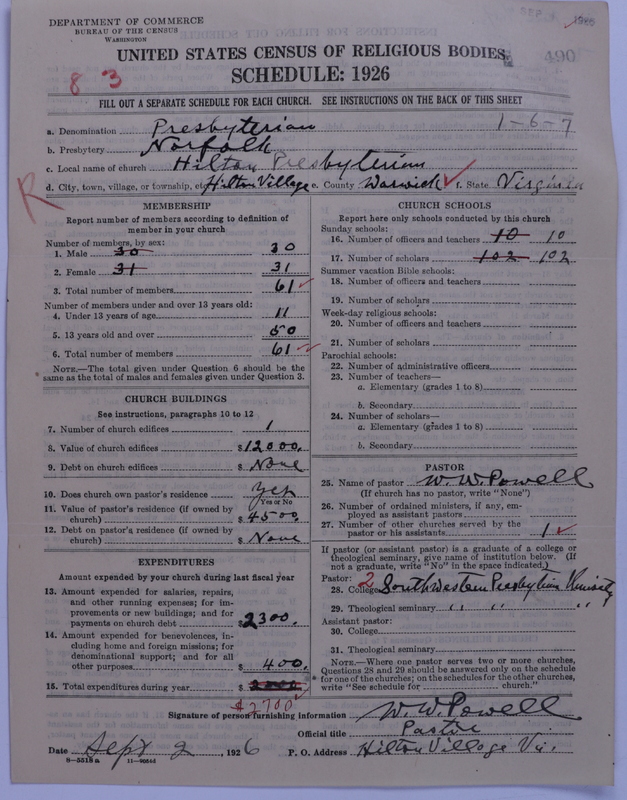 DEPARTMENT OF COMMERCE
BUREAU OF THE CENSUS
WASHINGTON
UNITED STATES CENSUS OF RELIGIOUS BODIES
490
SCHEDULE: 1926
8 3
FILL OUT A SEPARATE SCHEDULE FOR EACH CHURCH. SEE INSTRUCTIONS ON THE BACK OF THIS SHEET
1-6-7
a. Denomination Presbyterian
b. Presbytery Norfolk
c. Local name of church Hilton Presbyterian
d. City, town, village, or township, etc. Hilton Village e. County Warwick f. State Virginia
R
MEMBERSHIP
Report number of members according to definition of
member in your church
Number of members, by sex:
1. Male 30 30
2. Female 31 31
3. Total number of members 61
Number of members under and over 13 years old:
4. Under 13 years of age 11
5. 13 years old and over 50
6. Total number of members 61
NOTE.—The total given under Question 6 should be the
same as the total of males and females given under Question 3.
CHURCH BUILDINGS
See instructions, paragraphs 10 to 12
7. Number of church edifices 1
8. Value of church edifices $12000.
9. Debt on church edifices $ None
10. Does church own pastor's residence Yes
Yes or No
11. Value of pastor's residence (if owned by
church) $ 4500.
12. Debt on pastor's residence (if owned by
church) $ None
EXPENDITURES
Amount expended by church during last fiscal year
13. Amount expended for salaries, repairs,
and other running expenses; for im-
provements or new buildings; and for
payments on church debt $2300.
14. Amount expended for benevolences, in-
cluding home and foreign missions; for
denominational support; and for all
other purposes $ 400.
15. Total expenditures during year $
$2700
CHURCH SCHOOLS
Report here only schools conducted by this church
Sunday schools:
16. Number of officers and teachers 10 10
17. Number of scholars 102 102
Summer vacation Bible schools:
18. Number of officers and teachers
19. Number of scholars
Week-day religious schools:
20. Number of officers and teachers
21. Number of scholars
Parochial schools:
22. Number of administrative officers
23. Number of teachers—
a. Elementary (grades 1 to 8)
b. Secondary
24. Number of scholars—
a. Elementary (grades 1 to 8)
b. Secondary
PASTOR
25. Name of pastor W. W. Powell
(If church has no pastor, write "None")
26. Number of ordained ministers, if any, em-
ployed as assistant pastors
27. Number of other churches served by the
pastor or his assistants 1
If pastor (or assistant pastor) is a graduate of a college or
theological seminary, give name of institution below. (If
not a graduate, write "No" in the space indicated.)
Pastor: 2
28. College Southwestern Presbyterian University
29. Theological seminary " " "
Assistant pastor:
30. College
31. Theological seminary
NOTE.—Where one pastor serves two or more churches,
Questions 28 and 29 should be answered only on the schedule
for one of the churches; on the schedules for the other churches,
write "See schedule for church."
Signature of person furnishing information W. W. Powell
Official title Pastor
Date Sept 2, 1926 P. O. Address Hilton Village Va.
8-5518 a